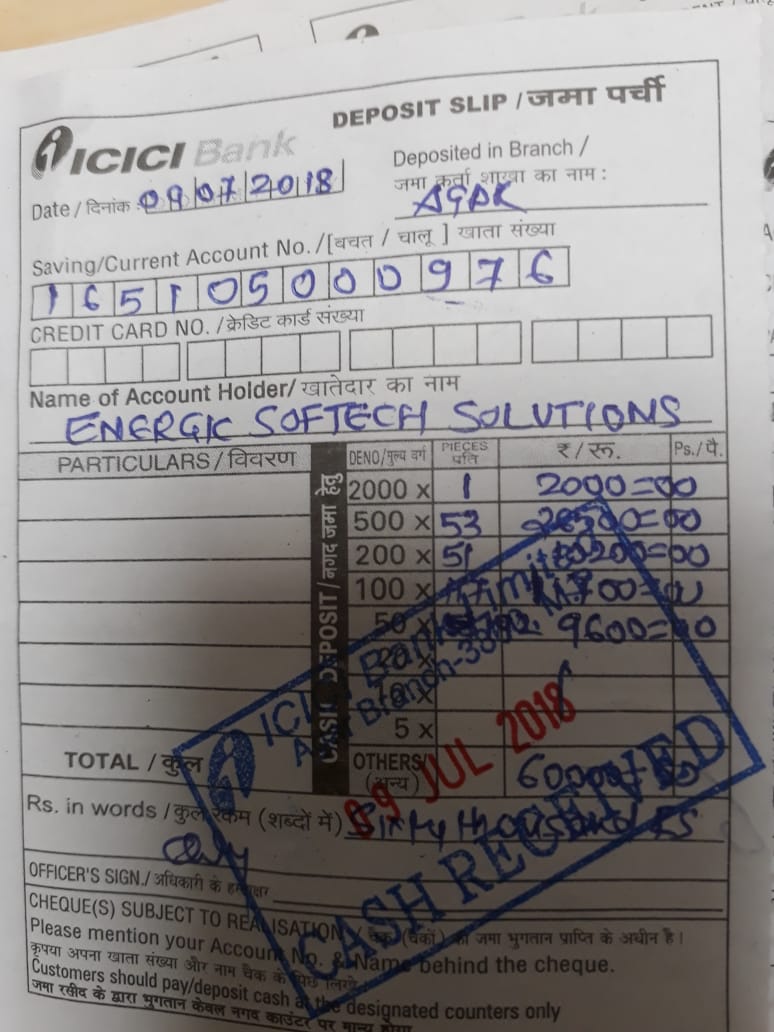 DEPOSIT SLIP / जमा पर्ची
ICICI Bank
Deposited in Branch /
जमा कर्ता शाखा का नाम :
AGAR
Date / दिनांक : 09072018
Saving/Current Account No. /[बचत / चालू ] खाता संख्या
165105000976
CREDIT CARD NO. / क्रेडिट कार्ड संख्या
Name of Account Holder/ खातेदार का नाम
ENERGIC SOFTECH SOLUTIONS
PARTICULARS / विवरण DENO/मुल्य वर्ग PIECES प्रति ₹ / रू. Ps./ पै.
CASH DEPOSIT / नगद जमा हेतु
2000 x 1 2000=00
500 x 53 26500=00
200 x 51 10200=00
100 x
50 x 9600=00
20 x
10 x
5 x
TOTAL / कुल OTHERS/ (अन्य) 60000=00
Rs. in words / कुल रकम (शब्दों में) Sixty thousand RS
OFFICER'S SIGN./ अधिकारी के हस्ताक्षर
CHEQUE(S) SUBJECT TO REALISATION / चैक (चैकों) का जमा भुगतान प्राप्ति के अधीन है।
Please mention your Account No. & Name behind the cheque.
कृपया अपना खाता संख्या और नाम चैक के पिछे लिखें
Customers should pay/deposit cash at the designated counters only
जमा रसीद के द्वारा भुगतान केवल नगद काउंटर पर मान्य होगा
ICICI Bank Limited
Branch
09 JUL 2018
CASH RECEIVED